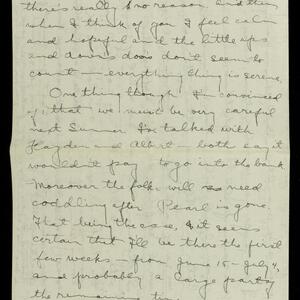 there's really no reason. And then
when I think of you I feel calm
and hopeful and the little ups
and downs does don't seem to
count — everything thing is serene.
One thing though I'm convinced
of, that we must be very careful
next Summer. I've talked with
Hayden and Albert — both say it
wouldn't pay to go into the bank.
Moreover the folks will need
coddling after Pearl is gone.
That being the case, it seems
certain that I'll be there the first
few weeks — from June 15 - July 4,
and probably a large part of
the remaining time